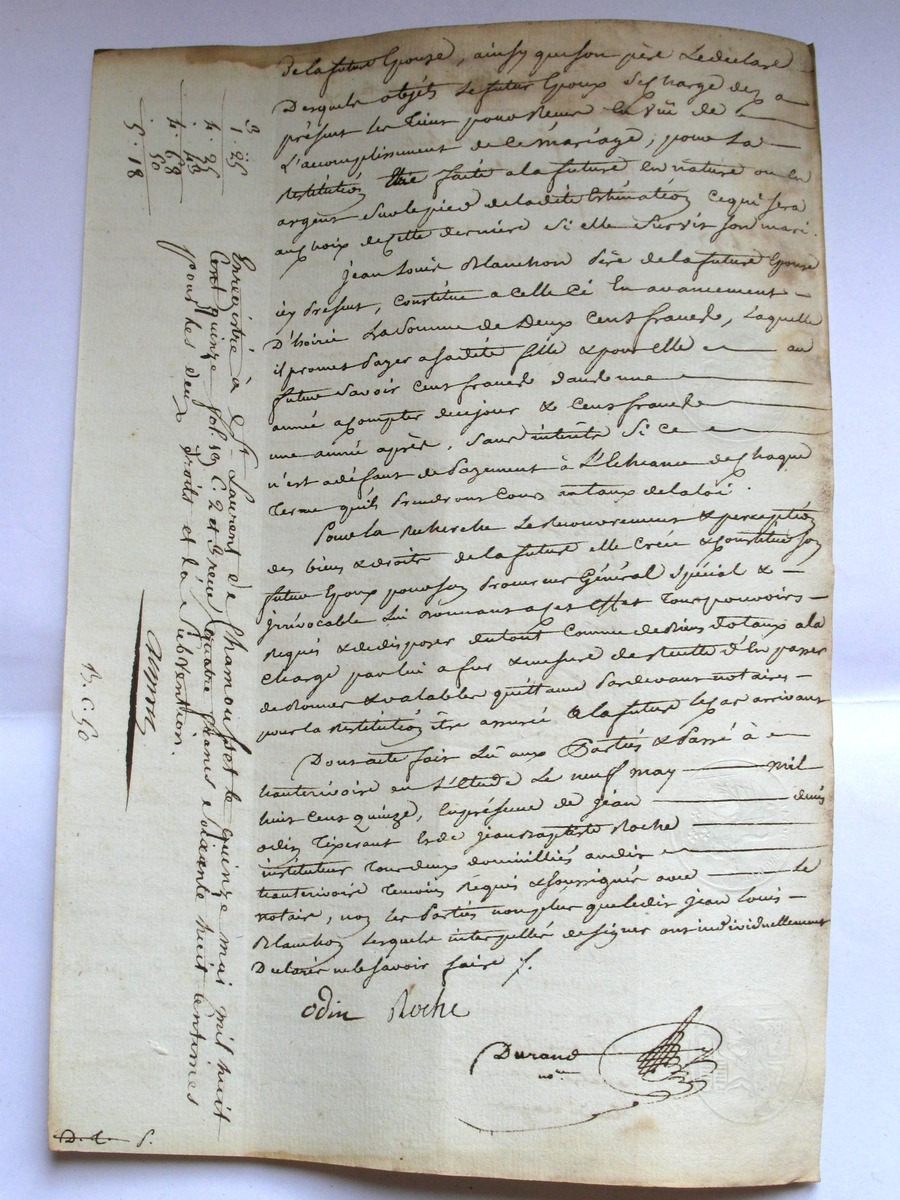 De la future Epouse, ainsy que son père Le declare
Desquels objets Le futur Epoux se charge dez a
présent Les tient pour Reçus En vüe de
L'accomplissement de ce mariage, pour La
Restitution Etre faite a la future En nature ou En
argent Sur le pied de la dite Estimation Ce qui sera
au choix de cette derniere Si elle Survit son mari.
Jean Louis Blanchon Père de la future Epouse
icy Présent, Constitue a celle Cÿ En avancement
D'hoirie La Somme de Deux Cens francs, Laquelle
il promet Payer a sa dite fille & pour elle au
futur Savoir Cens francs dans une
année a Compter de ce jour & Cens francs
une année après, Sans intérêts Si ce
n'est a défaut de Payement à L'Echéance de chaque
Terme qu'ils Prendront Cours au taux de la loi.
Pour la Recherche Le Recouvrement & perception
des biens & droits de la future elle Crée & Constitue son
futur Epoux pour son Procureur Général Spécial &
Irrévocable Lui Donnant a cet Effet Tous pouvoirs
Requis & de disposer du tout Comme de Biens Dotaux a la
Charge par lui a fur & mesure de Recette d'En passer
de Bonnes & valables quittances Pardevant notaires
pour la Restitution être assurée a la future le cas arrivant
Dont acte fait Lû aux Parties & Passé à
hauterivoire En L'Etude Le neuf may mil
huit Cens quinze, En présence de Jean denis
odin Tixerant & de Jean Baptiste Roche
instituteur Tous deux domiciliés audit
hauterivoire Témoins Requis & Soussignés avec Le
notaire, non les Parties non plus que ledit Jean Louis
Blanchon Lesquels interpellés de signer ont individuellement
Déclaré ne le savoir faire
odin Roche
Durand
no.re
Enregistré à St Laurent de Chamousset le quinze mai mil huit
Cent quinze fol. 59 C. 2 et 3 Reçu quatre francs soixante huit centimes
pour les deux droits et la Subvention.
3.
1. 25
4. 25
4. 68
50
5. 18